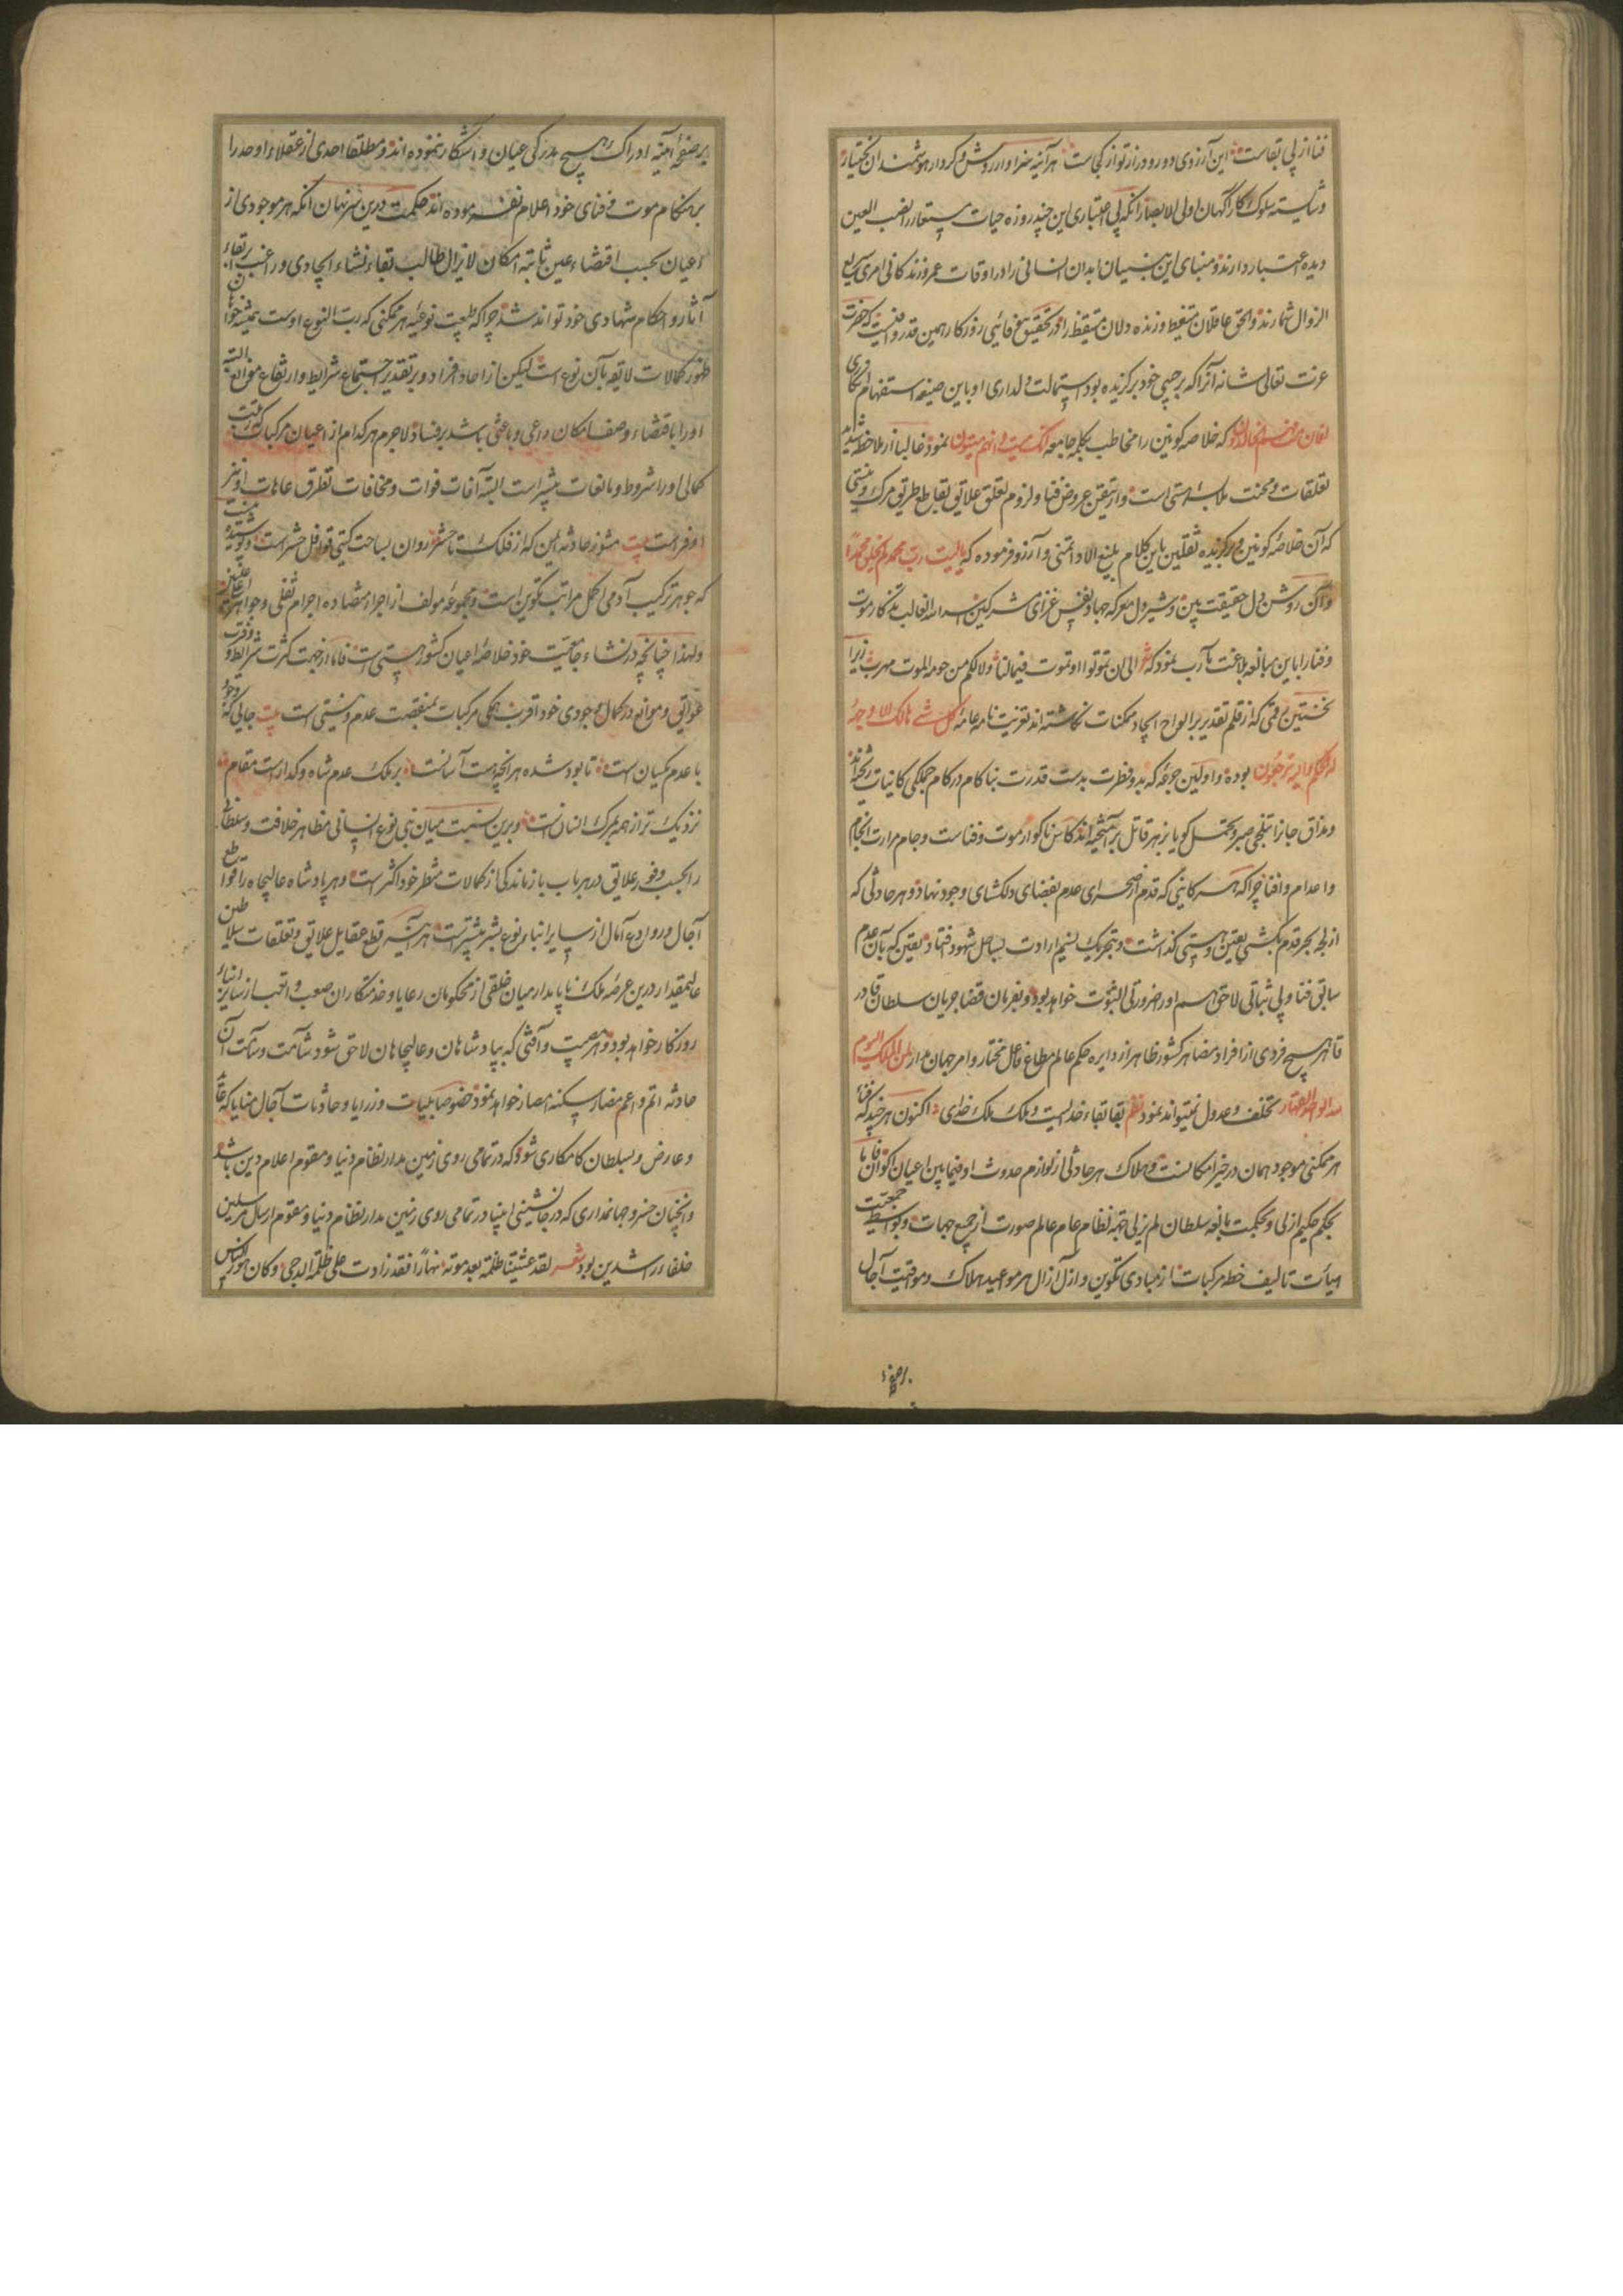 فنا از پی بقاست این آرزوی دور و دراز تو از کجاست هر آینه سزاوار روش و کردار هوشمندان بختیار
و شایسته سلوک کارآگهان اولی الابصار آنکه بی اعتباری این چند روزه حیات مستعار را نصب العین
دیده اعتبار دارند و مبنای این بنیان ابدان انسانی را در اوقات عمر و زندکانی امری سریع
الزوال شمارند و الحق عاقلان متیقظ و زنده دلان متیقظ را در تحقیق روزکار همین قدر که حضرت
عزت تعالی شانه آنرا که بر حبیبی خود برکزیده بود استمالت و دلداری او باین صیغه استفهام انکاری
افان مت فهم الخالدون که خلاصه کونین را مخاطب بکلمه جامعه انک میت و انهم میتون نمود غالبا از ملاحظه شداید
تعلقات و محنت ملابسه هستی است و از تیقن عروض فنا و لزوم تعلق علایق بقاطع طریق مرک و نیستی
که آن خلاصه کونین و برکزیده ثقلین باین کلام بلیغ الادا تمنی و آرزو فرموده که یا لیت رب محمد لم یخلق محمدا
و آن روشن دل حقیقت بین و شیر دل معرکه جهاد نفس و غزای مشرکین اسد الله الغالب تذکار موت
و فنا را باین مبالغه بلاغت مآب نمود که شعر الی ان تموتوا او نموت فما لنا و لا لکم من حومه الموت مهرب زیرا
نخستین رقمی که از قلم تقدیر بر الواح ایجاد ممکنات نکاشته اند تعزیت نامه عامه کل شی هالک الا وجهه
له الحکم و الیه ترجعون بوده و اولین جرعه که بدو فطرت بدست قدرت بناکام در کام جملکی کاینات ریخته اند
و مذاق جانرا بتلخی صبر و تحمل کویا بزهر قاتل برآمیخته اند کاس ناکوار موت و فناست و جام مرارت انجام
و اعدام و افنا چرا که هر کاینی که قدم از صحرای عدم بفضای دلکشای وجود نهاد و هر حادثی که
از لجه بحر قدم بکشتی تعین و هستی کذاشت و بتحریک نسیم ارادت بساحل شهود فتاد یقین که بآن عدم
سابق فنا و بی ثباتی لاحق اسم او را ضرورتی الثبوت خواهد بود و بفرمان قضا جریان سلطان قادر
قاهر هیچ فردی از افراد مضاهر کشور ظاهر از دایره حکم عالم مطاع فاعل مختار و امر جهان مدار لمن الملک الیوم
لله الواحد القهار تخلف و عدول نمیتواند نمود نظم بقا بقاء خدایست و ملک ملک خدای اکنون هر چند که فناء
هر ممکنی موجود همان در حیز امکانست و هلاک هر حادثی از لوازم حدوث او فیما بین اعیان کوان اما
بحکم حکیم ازلی و بحکمت بالغه سلطان لم یزلی جهة نظام عام عالم صورت از جمیع جهات و بواسطه جمعیت
هیأت تالیف خطه مرکبات از مبادی تکوین و ازل آزال هر موعید هلاک و مواقیت آجال
بر صفحه
بر صفحه آمنیه ادراک هیچ مدرکی عیان و آشکار ننموده اند و مطلقا احدی از عقلاء اوحد را
بر هنکام موت و فنای خود اعلام نفرموده اند حکمت درین سر نهان آنکه هر موجودی از
اعیان بحسب اقتضاء عین ثابته امکان لایزال طالب بقاء نشاء ایجادی و راغب ابقاء
آثار و احکام شهادی خود تواند شد چرا که طبیعت نوعیه هر ممکنی که رب النوع اوست همیشه خواهان
ظهور کمالات لایقه بآن نوع است لیکن از احاد افراد و بر تقدیر اجتماع شرایط و ارتفاع موانع البته
او را باقتضاء وصف امکان داعی و باعثی باشد بر فساد لاجرم هر کدام از اعیان مرکبات که رتبت
کمالی او را شروط و مانعات بیشتر است البته آفات فوات و مخافات تطرق عاهات او نیز
اوفر است بیت منوز حادثه ایمن که از فلک تا حشر روان بساحت کیتی قوافل حشر است
که جوهر ترکیب آدمی اکمل مراتب تکوین است و مجموعه مولف از اجزاء متضاده اجرام ثقلی و جواهر
و لهذا چنانچه در نشاء جامعیت خود خلاصه اعیان کشور هستی است فاما از جهت کثرت شرایط و وفور
عوایق و موانع در کمال وجودی خود اقرب همکی مرکبات بمنقصت عدم و نیستی است بیت جایی که وجود
با عدم یکسان است نابود شده هر آنچه هست آسانست بر ملک عدم شاه و کدا راست مقام
نزدیک تر از همه بمرک انسان است و برین نسبت میان بنی نوع انسانی مظاهر خلافت و سلطنت
را بحسب وفور علایق در هر باب باز ماندکی از کمالات منتظر خود اکثر است و هر پادشاه عالیجاه را قواطع
آجال و روادع آمال از سایر ابناء نوع بشر بیشتر است هر آینه قطع عقایل علایق و تعلقات سلاطین
عالیمقدار درین عرصه ملک ناپایدار میان خلقی از محکومان رعایا و خدمتکاران صعب و اتعب از سایر ابناء
روزکار خواهد بود و هر مصیبت و آفتی که بپادشاهان و عالیجاهان لاحق شود شآمت و سآمت آن
حادثه اتم و اعم مضار سکنه امصار خواهد نمود خصوصا بلیات و رزایا و حادثات آجال منایا که
و عارض بسلطان کامکاری شود که در تمامی روی زمین مدار نظام دنیا و مقوم اعلام دین باشد
و آنچنان خسرو جهانداری که در جانشینی انبیا در تمامی روی زمین مدار نظام دنیا و مقوم ارسال مرسلین
خلفاء راشدین بود شعر لقد غشیتنا ظلمة بعد موته نهارا فقد زادت علی ظلمة الدجی و کان